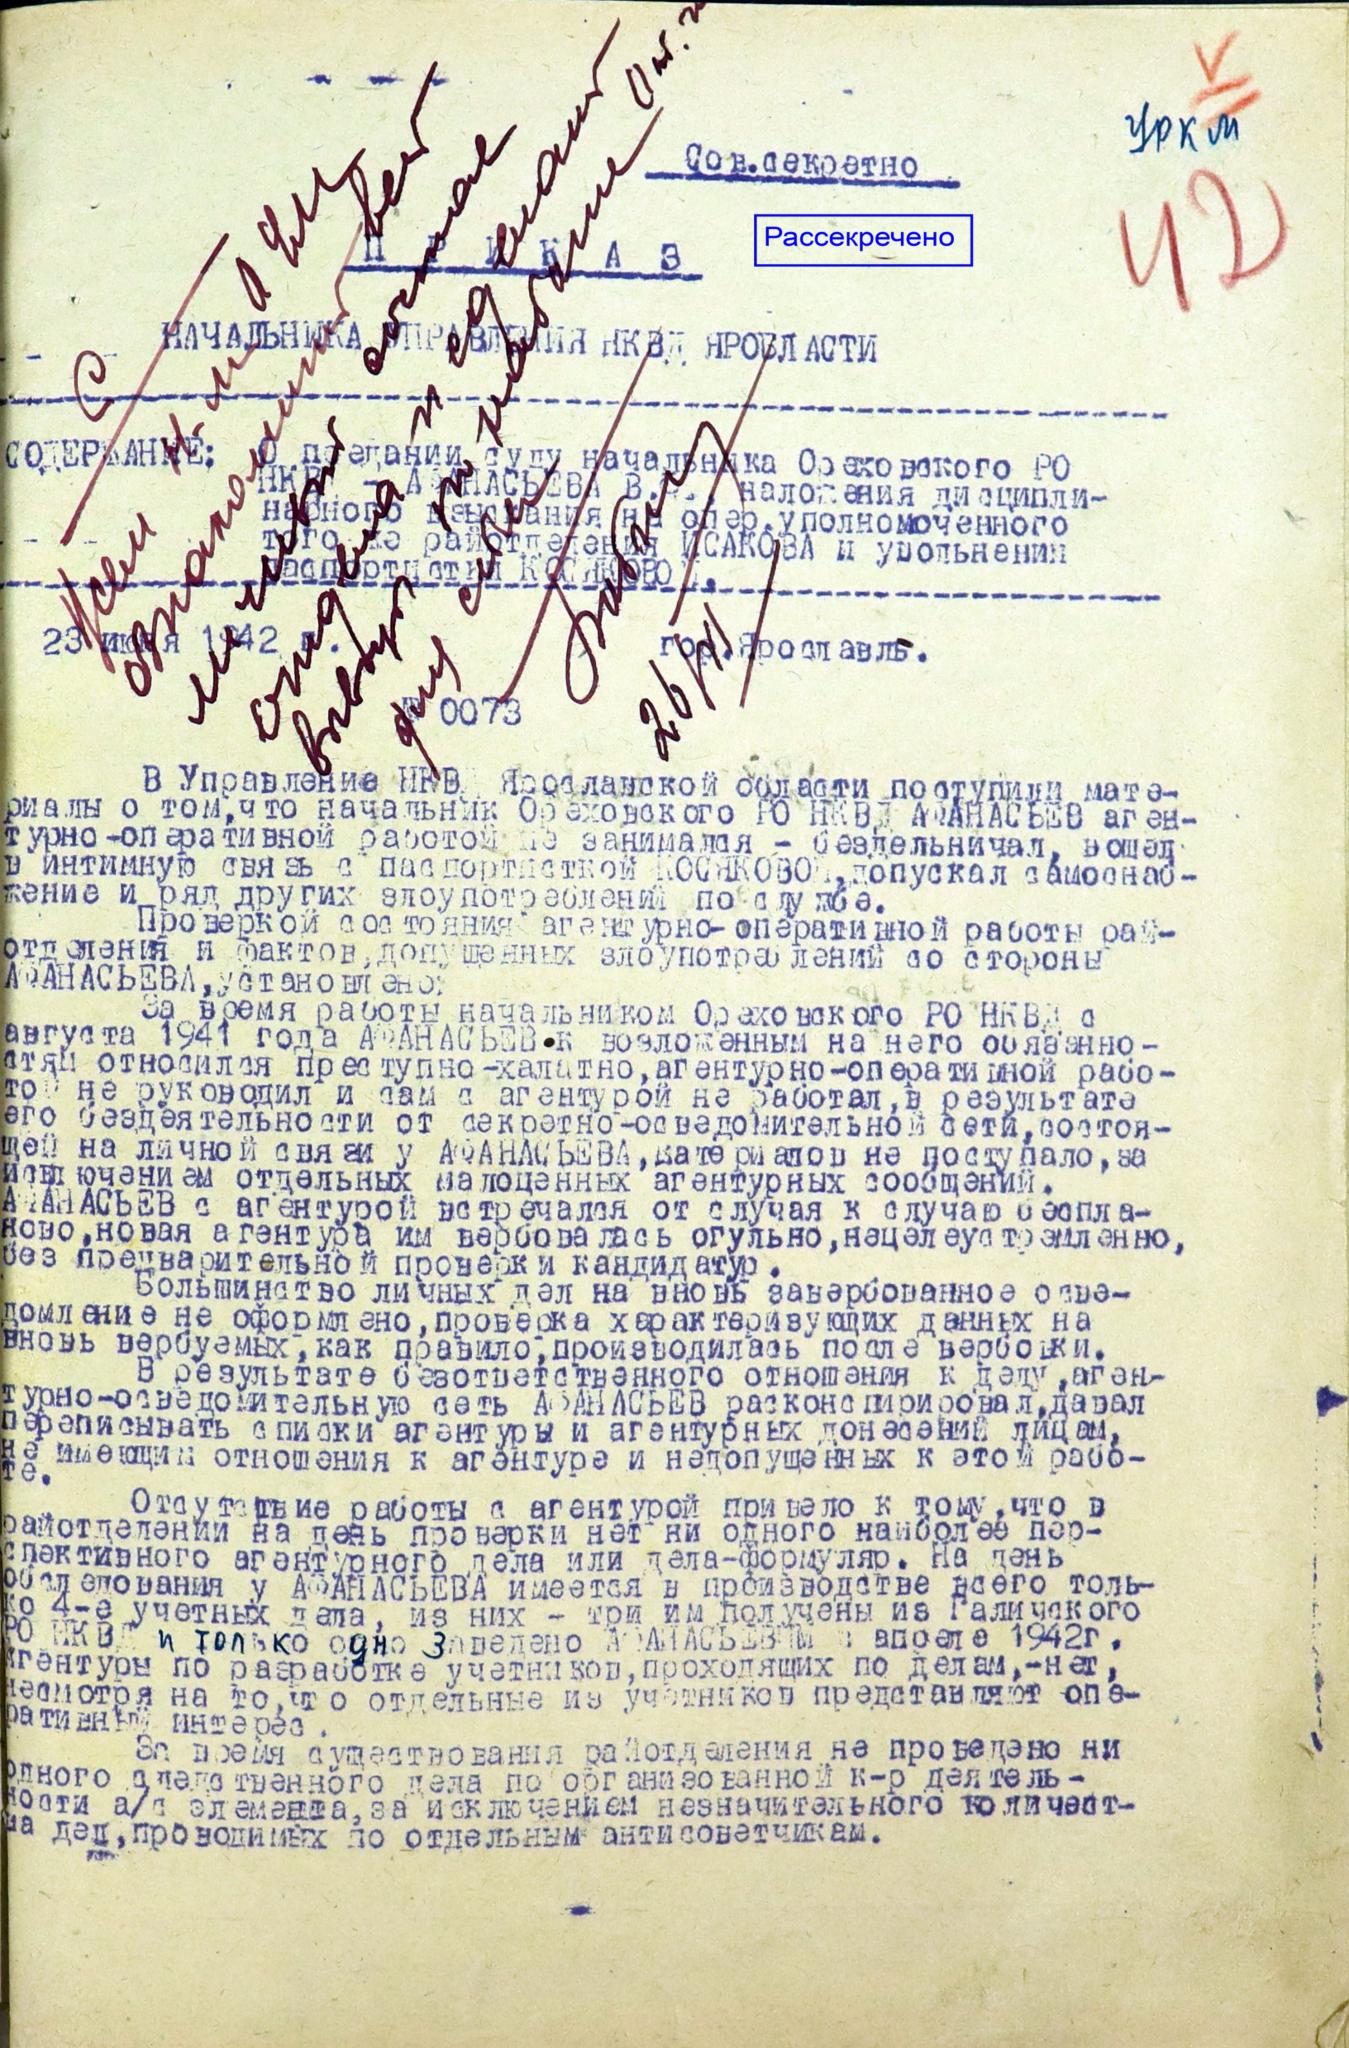 УРКМ
Сов.секретно
42
Рассекречено
П Р И К А З
НАЧАЛЬНИКА УПРАВЛЕНИЯ НКВД ЯРОБЛАСТИ
СОДЕРЖАНИЕ: О предании суду начальника Ореховского РО
НКВД - АФАНАСЬЕВА В. , наложения дисципли-
нарного взыскания на опер.уполномоченного
того же райотделения ИСАКОВА и увольнении
паспортистки КОСЯКОВОЙ.
23 июня 1942 г. гор.Ярославль.
№ 0073
В Управление НКВД Ярославской области поступили мате-
риалы о том,что начальник Ореховского РО НКВД АФАНАСЬЕВ аген-
турно-оперативной работой не занимался - бездельничал, вошел
в интимную связь с паспортисткой КОСЯКОВОЙ,допускал самоснаб-
жение и ряд других злоупотреблений по службе.
Проверкой состояния агентурно-оперативной работы рай-
отделения и фактов,допущенных злоупотреблений со стороны
АФАНАСЬЕВА,установлено:
За время работы начальником Ореховского РО НКВД с
августа 1941 года АФАНАСЬЕВ к возложенным на него обязанно-
стям относился преступно-халатно,агентурно-оперативной рабо-
той не руководил и сам с агентурой не работал,в результате
его бездеятельности от секретно-осведомительной сети,состоя-
щей на личной связи у АФАНАСЬЕВА,материалов не поступало,за
исключением отдельных малоценных агентурных сообщений.
АФАНАСЬЕВ с агентурой встречался от случая к случаю беспла-
ново,новая агентура им вербовалась огульно,нецелеустремленно,
без предварительной проверки кандидатур.
Большинство личных дел на вновь завербованное осве-
домление не оформлено,проверка характеризующих данных на
вновь вербуемых,как правило,производилась после вербовки.
В результате безответственного отношения к делу,аген-
турно-осведомительную сеть АФАНАСЬЕВ расконспирировал,давал
переписывать списки агентуры и агентурных донесений лицам,
не имеющим отношения к агентуре и недопущенных к этой рабо-
те.
Отсутствие работы с агентурой привело к тому,что в
райотделении на день проверки нет ни одного наиболее пер-
спективного агентурного дела или дела-формуляр. На день
обследования у АФАНАСЬЕВА имеется в производстве всего толь-
ко 4-е учетных дела, из них - три им получены из Галичского
РО НКВД и только одно заведено АФАНАСЬЕВЫМ в апреле 1942г.
Агентуры по разработке учетников,проходящих по делам,-нет,
несмотря на то,что отдельные из учетников представляют опе-
ративный интерес.
За время существования райотделения не проведено ни
одного следственного дела по организованной к-р деятель-
ности а/с элемента,за исключением незначительного количест-
ва дел,проводимых по отдельным антисоветчикам.